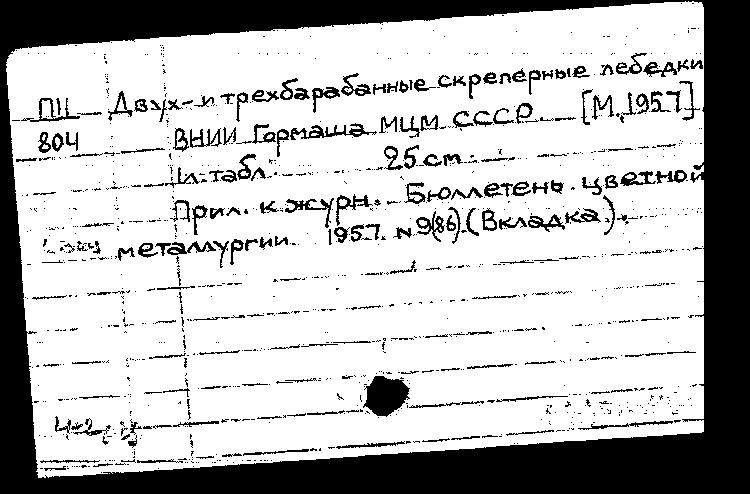 ПЦ Двух- и трехбарабанные скреперные лебедки
804 ВНИИ Гормаша МЦМ СССР. [М., 1957]
1л. табл. 25 см.
Прил. к журн. Бюллетень цветной
металлургии. 1957. N 9(86). (Вкладка).